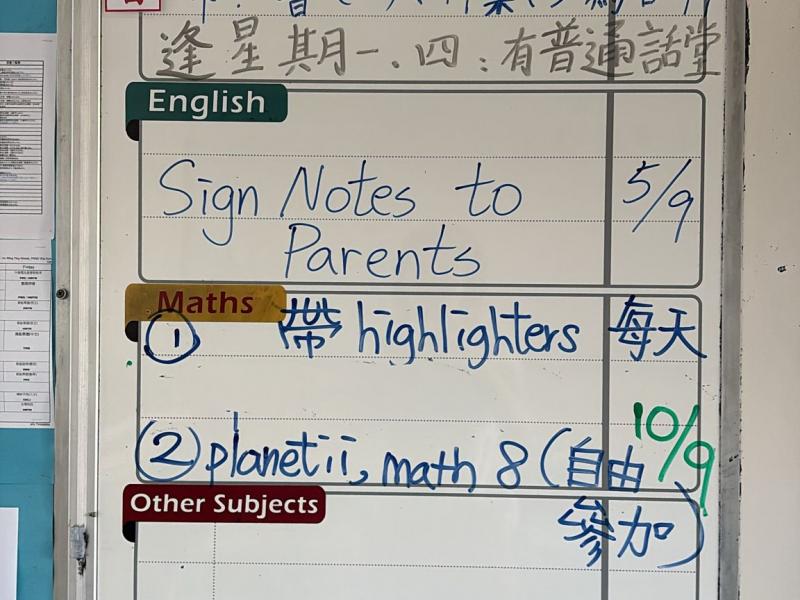 逢星期一、四:有普通話堂
English
Sign Notes to 5/9
Parents
Maths
① 帶 highlighters 每天
② planetii, math 8 (自由 10/9
參加)
Other Subjects